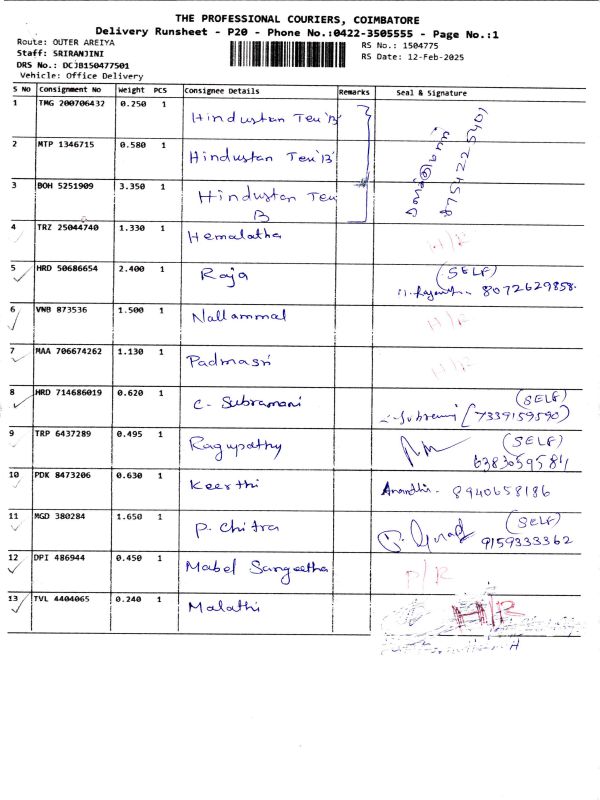 THE PROFESSIONAL COURIERS, COIMBATORE
Delivery Runsheet - P20 - Phone No.:0422-3505555 - Page No.:1
Route: OUTER AREIYA
Staff: SRIRANJINI
DRS No.: DCJB150477501
Vehicle: Office Delivery
RS No.: 1504775
RS Date: 12-Feb-2025
S No Consignment No Weight PCS Consignee Details Remarks Seal & Signature
1 TMG 200706432 0.250 1 Hindustan Teu 'B'
2 MTP 1346715 0.580 1 Hindustan Teu 'B'
3 BOH 5251909 3.350 1 Hindustan Teu
B
8754225401
4 TRZ 25044740 1.330 1 Hemalatha H/R
5 HRD 50686654 2.400 1 Raja (SELF)
8072629858.
6 VNB 873536 1.500 1 Nallammal H/R
7 MAA 706674262 1.130 1 Padmasri H/R
8 HRD 714686019 0.620 1 C. Subramani (SELF)
7339159590
9 TRP 6437289 0.495 1 Ragupathy (SELF)
6383059581
10 PDK 8473206 0.630 1 Keerthi Anandhi. 8940658186
11 MGD 380284 1.650 1 P. Chitra (SELF)
9159333362
12 DPI 486944 0.450 1 Mabel Sangeetha P/R
13 TVL 4404065 0.240 1 Malathi H/R
H